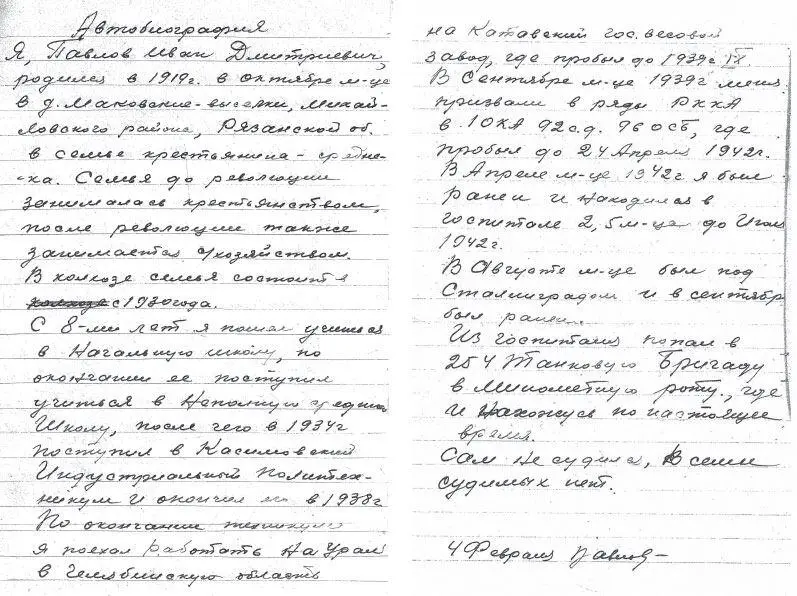 Автобиография
Я, Павлов Иван Дмитриевич,
родился в 1919г. в октябре м-це
в д. Маковские-выселки, Михай-
ловского района, Рязанской об.
в семье крестьянина-средня-
-ка. Семья до революции
занималась крестьянством,
после революции также
занимается с/хозяйством.
В колхозе семья состоит
с 1930 года.
С 8-ми лет я пошел учиться
в Начальную школу, по
окончании ее поступил
учиться в Неполную среднюю
Школу, после чего в 1934г
поступил в Касимовский
Индустриальный Политех-
никум и окончил его в 1938г
По окончании техникума
я поехал работать на Урал
в Челябинскую область
на Катавский гос. весовой
завод, где пробыл до 1939г IX.
В Сентябре м-це 1939г меня
призвали в ряды РККА
в 10КА 92с.д. 96 ОСБ, где
пробыл до 24 Апреля 1942г.
В Апреле м-це 1942г я был
ранен и находился в
госпитале 2,5 м-ца до Июля
1942г.
В Августе м-це был под
Сталинградом и в сентябре
был ранен.
Из госпиталя попал в
254 Танковую Бригаду
в Минометную роту, где
и нахожусь по настоящее
время.
Сам не судился, В семье
судимых нет.
4 Февраля Павлов-